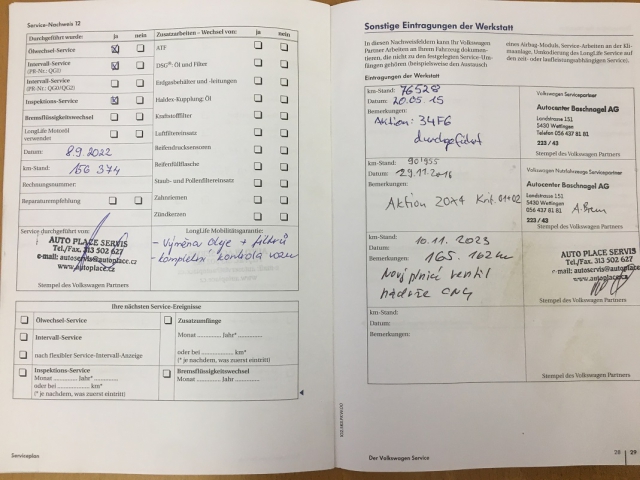 Service-Nachweis 12
Durchgeführt wurde: ja nein
Ölwechsel-Service
Intervall-Service
(PR-Nr.: QG2)
Intervall-Service
(PR-Nr.: QG0/QG2)
Inspektions-Service
Bremsflüssigkeitswechsel
LongLife Motoröl
verwendet
Datum: 8.9.2022
km-Stand: 156 374
Rechnungsnummer:
Reparaturempfehlung
Zusatzarbeiten – Wechsel von: ja nein
ATF
DSG®: Öl und Filter
Erdgasbehälter und -leitungen
Haldex-Kupplung: Öl
Kraftstofffilter
Luftfiltereinsatz
Reifendrucksensoren
Reifenfüllflasche
Staub- und Pollenfiltereinsatz
Zahnriemen
Zündkerzen
Service durchgeführt von:
AUTO PLACE SERVIS
Tel./Fax. 313 502 627
e-mail: autoservis@autoplace.cz
www.autoplace.cz
LongLife Mobilitätsgarantie:
- výměna oleje + filtrů
- kompletní kontrola vozu
Ihre nächsten Service-Ereignisse
Ölwechsel-Service
Intervall-Service
nach flexibler Service-Intervall-Anzeige
Inspektions-Service
Monat ............ Jahr* ............
oder bei ............ km*
(* je nachdem, was zuerst eintritt)
Zusatzumfänge
Monat ............ Jahr* ............
oder bei ............ km*
(* je nachdem, was zuerst eintritt)
Bremsflüssigkeitswechsel
Monat ............ Jahr ............
Serviceplan
Sonstige Eintragungen der Werkstatt
In diesen Nachweisfeldern kann Ihr Volkswagen
Partner Arbeiten an Ihrem Fahrzeug dokumen-
tieren, die nicht zu den festgelegten Service-Um-
fängen gehören (beispielsweise den Austausch
eines Airbag-Moduls, Service-Arbeiten an der Kli-
maanlage, Umkodierung des LongLife Service auf
den zeit- oder laufleistungsabhängigen Service).
Eintragungen der Werkstatt
km-Stand: 76528
Datum: 20.05.15
Bemerkungen:
Aktion: 34F6
durchgeführt
Volkswagen Servicepartner
Autocenter Baschnagel AG
Landstrasse 151
5430 Wettingen
Telefon 056 437 81 81
223 / 43
Stempel des Volkswagen Partners
km-Stand: 90'955
Datum: 29.11.2016
Bemerkungen:
Aktion 20X4 Krit. 01+02
Volkswagen Nutzfahrzeuge Servicepartner
Autocenter Baschnagel AG
Landstrasse 151
5430 Wettingen
056 437 81 81
223 / 43
Stempel des Volkswagen Partners
km-Stand:
Datum: 10.11.2023
Bemerkungen: 165.162 km
Nový plnící ventil
nádrže CNG
AUTO PLACE SERVIS
Tel./Fax. 313 502 627
e-mail: autoservis@autoplace.cz
www.autoplace.cz
Stempel des Volkswagen Partners
km-Stand:
Datum:
Bemerkungen:
Stempel des Volkswagen Partners
Der Volkswagen Service
28
29